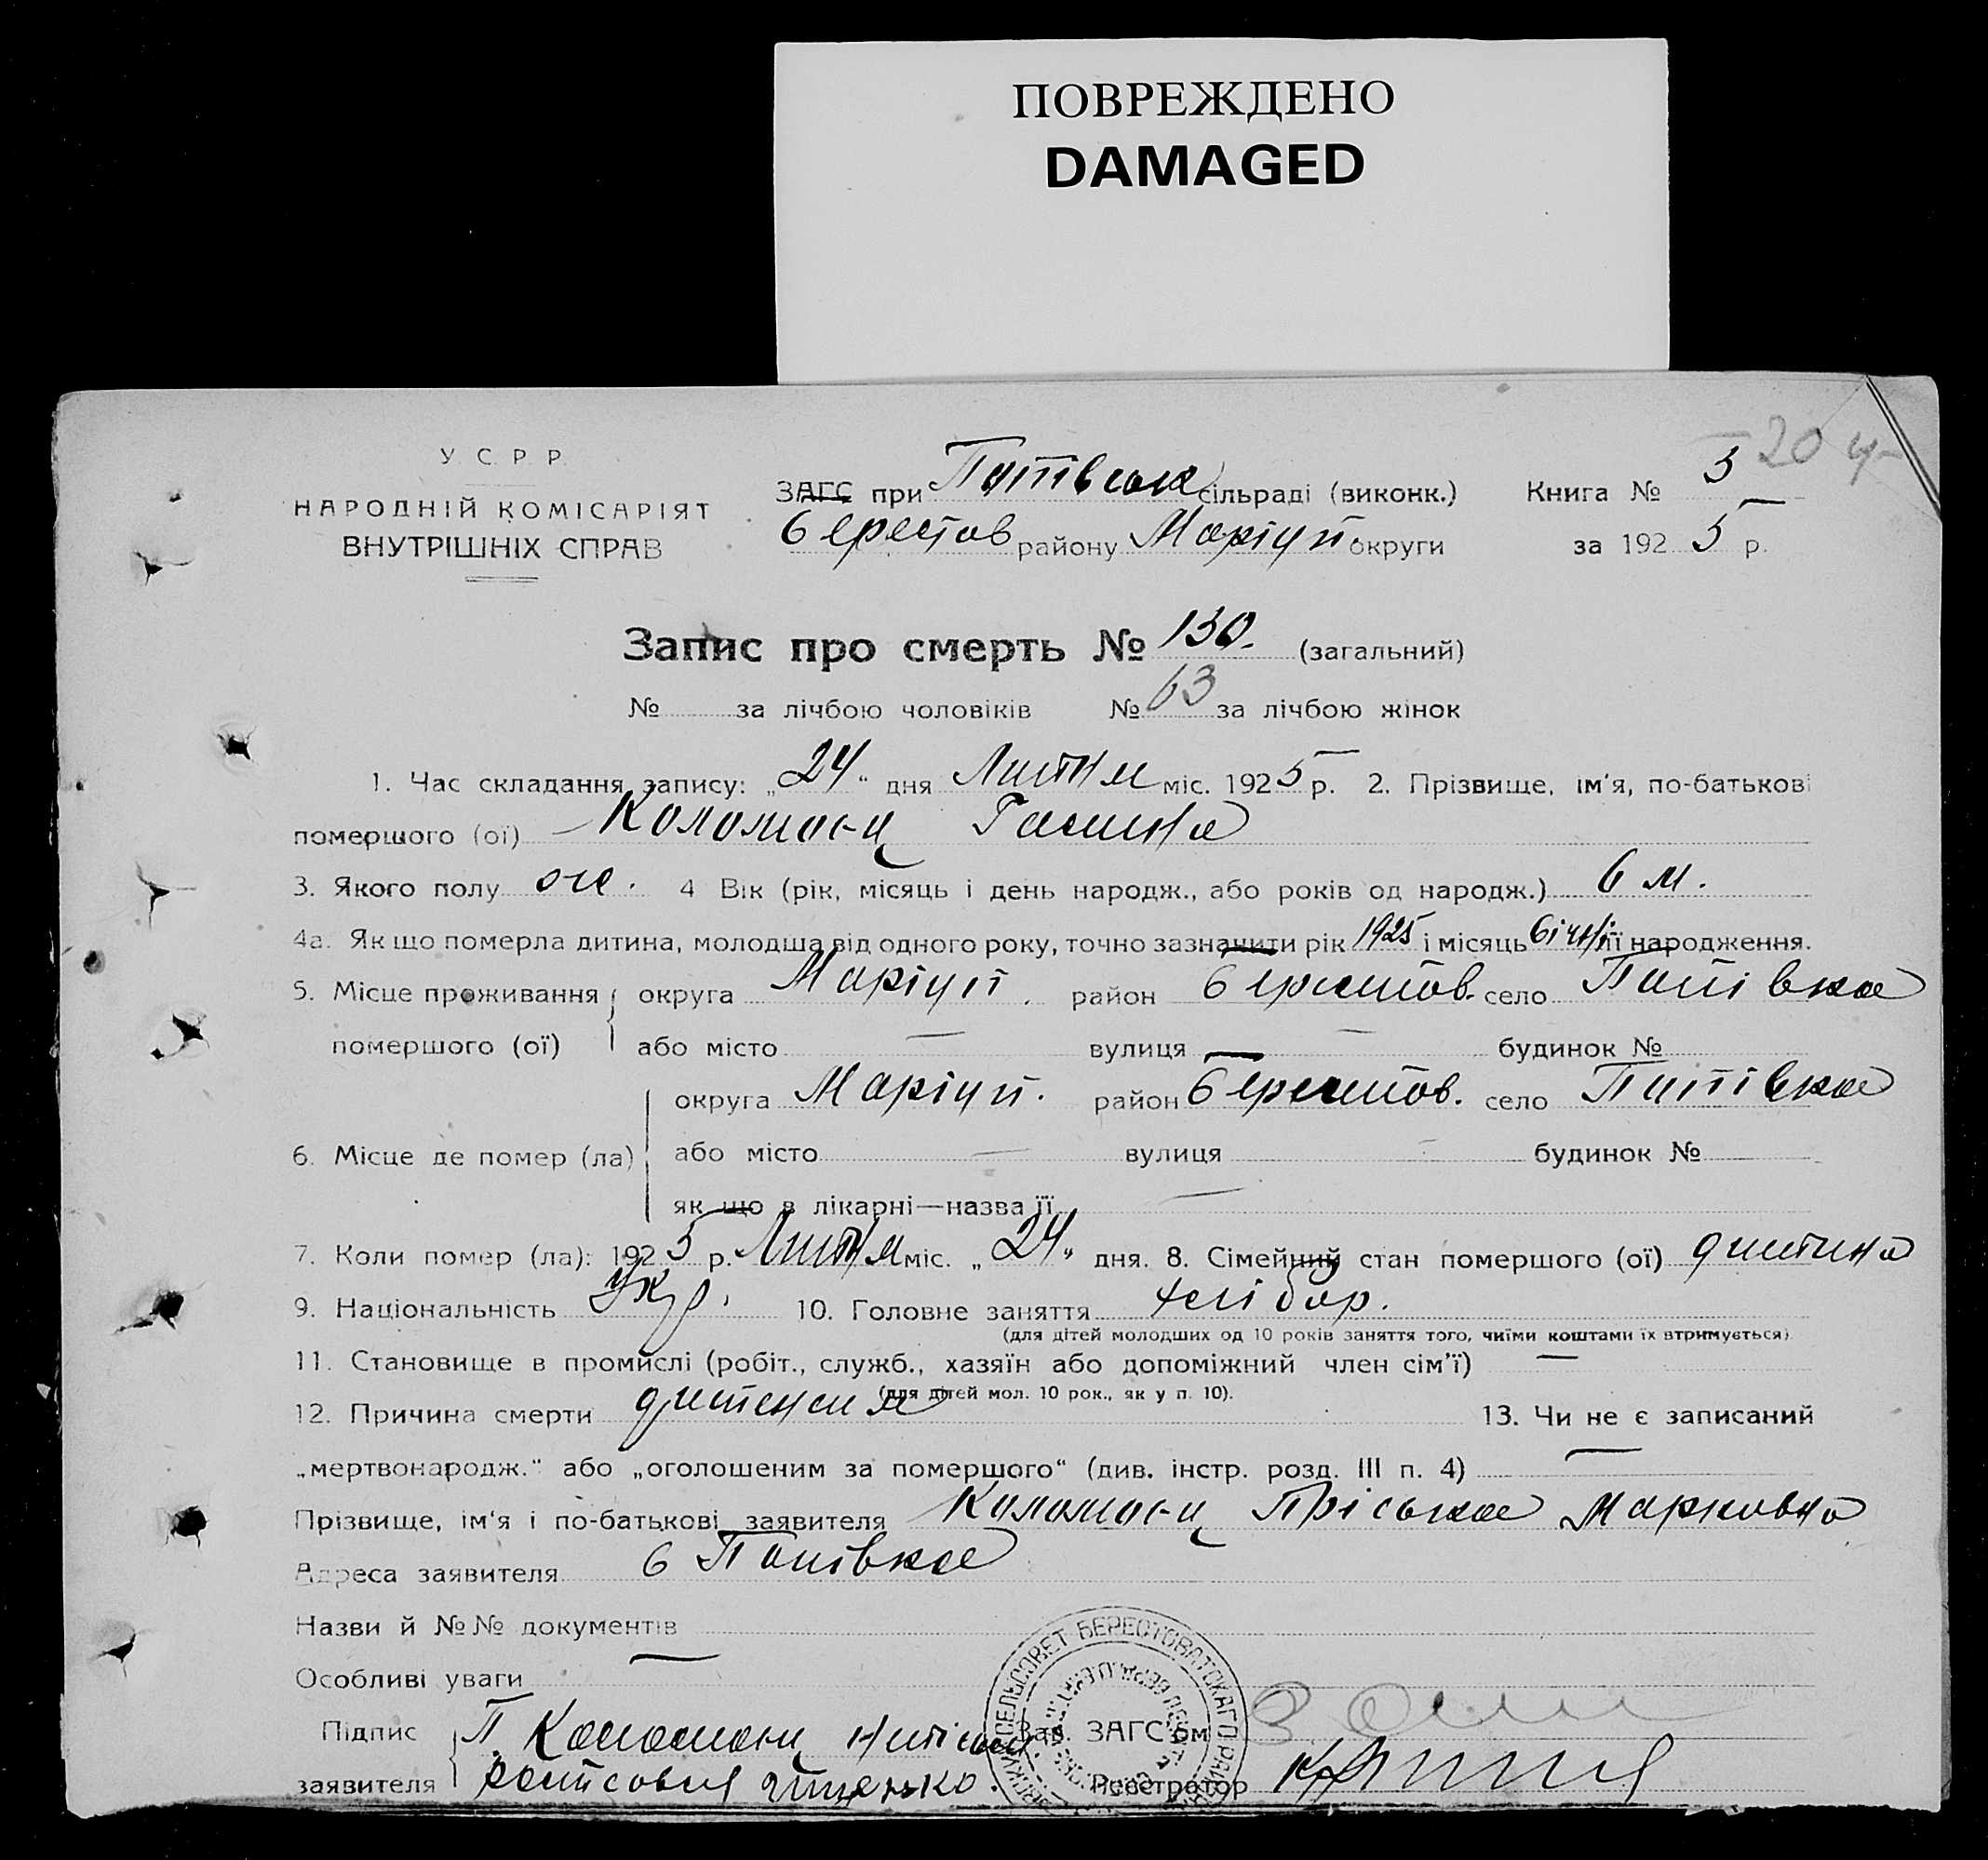 ПОВРЕЖДЕНО
DAMAGED
20
У. С. Р. Р.
НАРОДНІЙ КОМІСАРІЯТ
ВНУТРІШНІХ СПРАВ
ЗАГС при Попівськ сільраді (виконк.) Книга № 3
Берестов району Маріуп округи за 1925 р.
Запис про смерть № 130. (загальний)
№ за лічбою чоловіків № 63 за лічбою жінок
1. Час складання запису: „24“ дня Липня міс. 1925 р. 2. Прізвище, ім'я, по-батькові
помершого (ої) Коломоєц Галина
3. Якого полу ж. 4 Вік (рік, місяць і день народж., або років од народж.) 6 м.
4а. Як що померла дитина, молодша від одного року, точно зазначити рік 1925 і місяць Січн її народження.
5. Місце проживання округа Маріуп. район Берестов. село Попівка
помершого (ої) або місто — вулиця — будинок №
округа Маріуп. район Берестов. село Попівка
6. Місце де помер (ла) або місто — вулиця — будинок №
як що в лікарні—назва її —
7. Коли помер (ла): 1925 р. Липня міс. „24“ дня. 8. Сімейний стан помершого (ої) дитина
9. Національність Укр. 10. Головне заняття хлібор.
(для дітей молодших од 10 років заняття того, чиїми коштами їх втримується)
11. Становище в промислі (робіт., служб., хазяїн або допоміжний член сім'ї) —
(для дітей мол. 10 рок., як у п. 10).
12. Причина смерти 13. Чи не є записаний
„мертвонародж.“ або „оголошеним за помершого“ (див. інстр. розд. III п. 4) —
Прізвище, ім'я і по-батькові заявителя Коломоєц Пріська Марковна
Адреса заявителя с Попівка
Назви й №№ документів
Особливі уваги —
Підпис П. Коломоєц Зав. ЗАГС'ом
заявителя Реєстратор
СЕЛЬСОВЕТ БЕРЕСТОВАТСКАГО